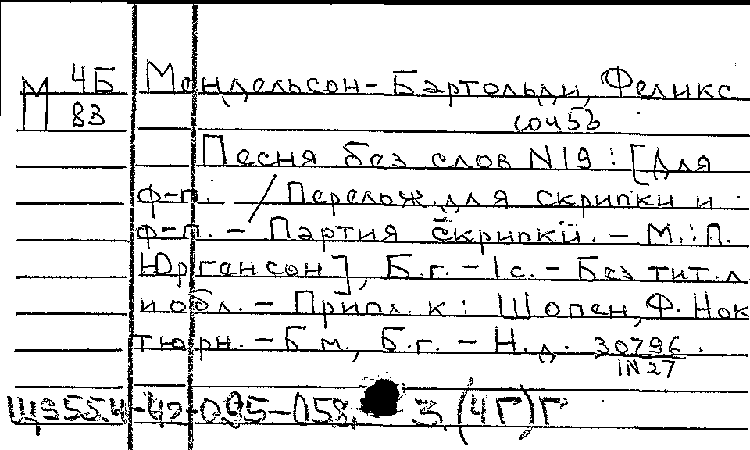 М 4Б Мендельсон-Бартольди, Феликс
83 соч53
Песня без слов N19: [Для
ф-п. / Перелож. для скрипки и
ф-п. - Партия скрипки. - М.: П.
Юргенсон], Б.г. - 1с. - Без тит. л
и обл. - Припл. к: Шопен, Ф. Нок
тюрн. - Б м, Б.г. - Н. д. 30796
1N27
Щ955.4-42-095-058. 3.(4Г)Г